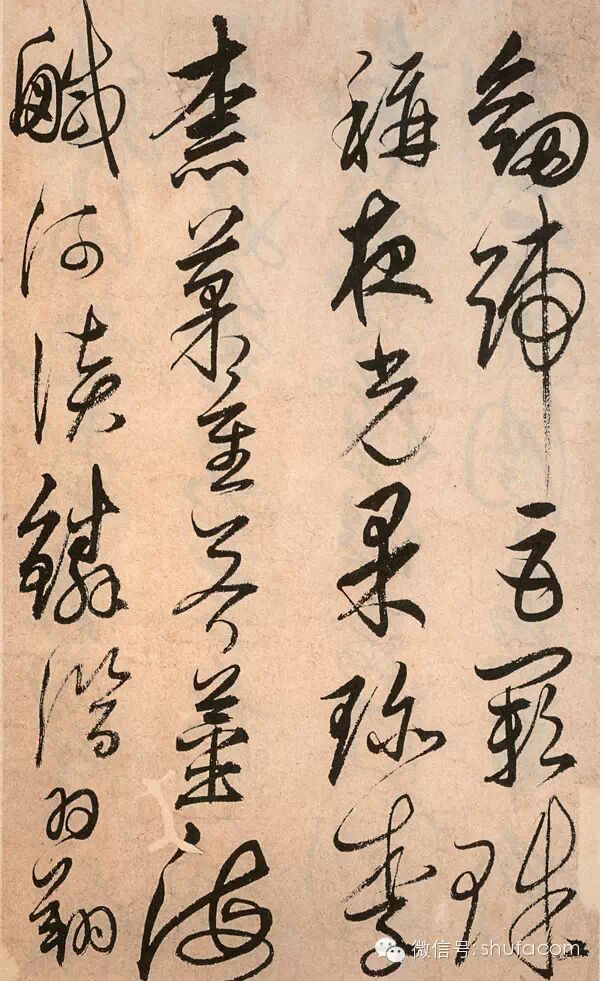 劍號巨闕珠
稱夜光果珍李
柰菜重芥薑海
鹹河淡鱗潛羽翔
微信号: shufacom